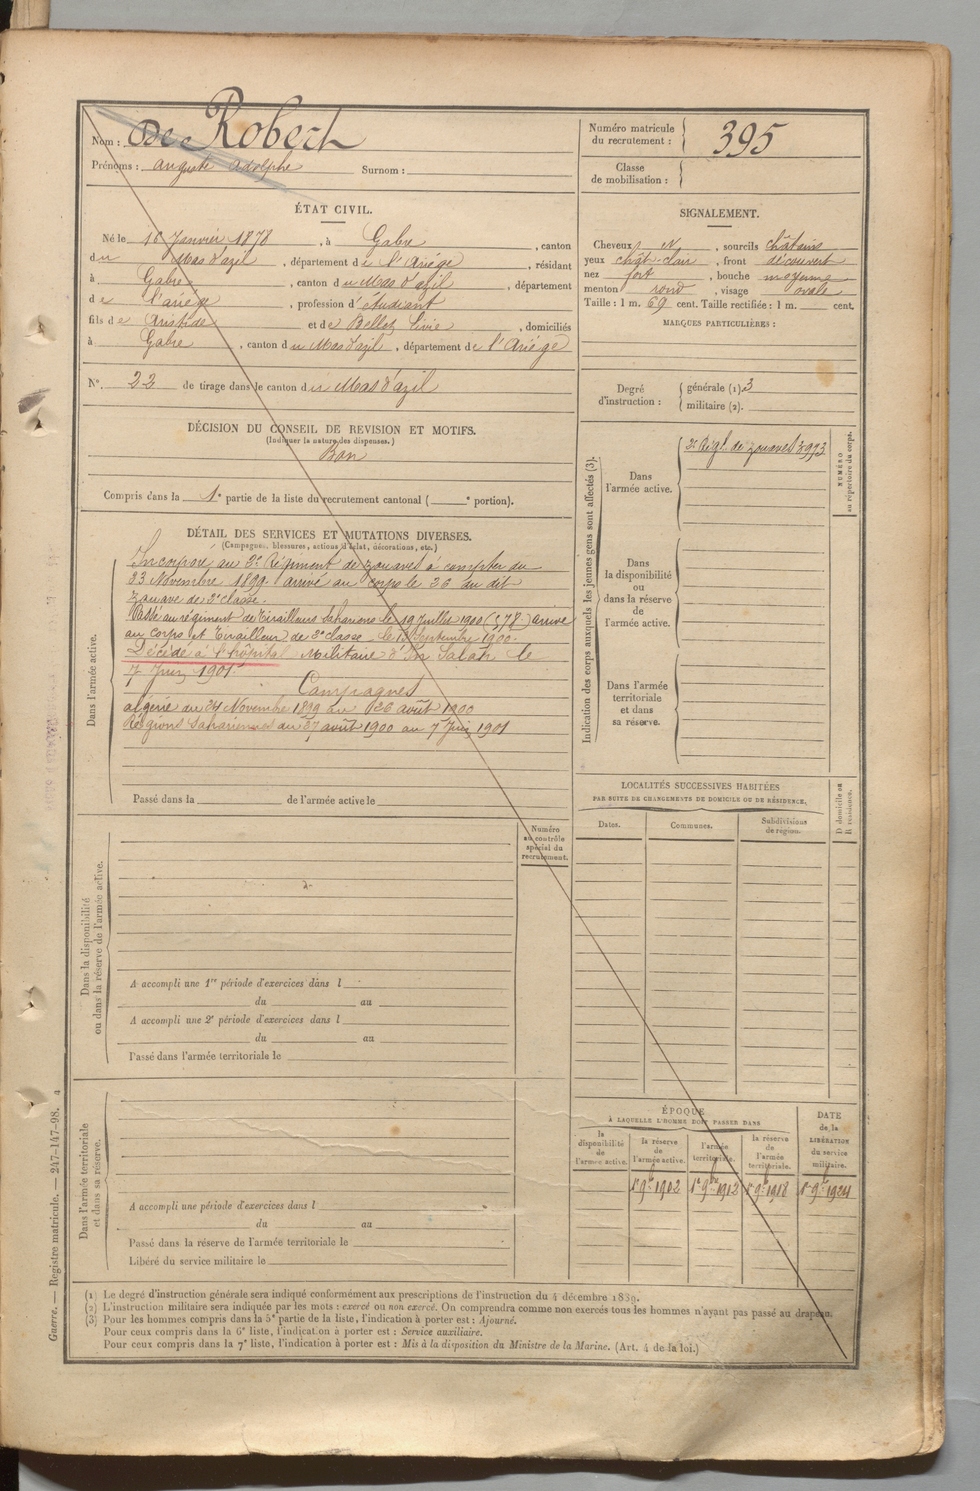 Nom : De Robert
Prénoms : Auguste Adolphe Surnom :
Numéro matricule du recrutement : 395
Classe de mobilisation :
ÉTAT CIVIL.
Né le 16 Janvier 1878, à Gabre, canton
du Mas d'azil, département de l'Ariége, résidant
à Gabre, canton du Mas d'azil, département
de l'ariége, profession d'étudiant
fils de Aristide et de Bellot, domiciliés
à Gabre, canton du Mas d'azil, département de l'Ariége
N° 22 de tirage dans le canton du Mas d'azil
SIGNALEMENT.
Cheveux N, sourcils châtains
yeux chât-clair, front découvert
nez fort, bouche moyenne
menton rond, visage ovale
Taille : 1 m. 69 cent. Taille rectifiée : 1 m. cent.
MARQUES PARTICULIÈRES :
Degré d'instruction : générale (1) 3
militaire (2).
DÉCISION DU CONSEIL DE REVISION ET MOTIFS.
(Indiquer la nature des dispenses.)
Bon
Compris dans la 1e partie de la liste du recrutement cantonal ( e portion).
DÉTAIL DES SERVICES ET MUTATIONS DIVERSES.
(Campagnes, blessures, actions d'éclat, décorations, etc.)
Dans l'armée active.
Incorporé au 3e Régiment de zouaves à compter du
23 Novembre 1899 arrivé au corps le 26 du dit
zouave de 2e classe.
Passé au régiment de Tirailleurs Sahariens le 19 Juillet 1900 (578) arrivé
au corps et Tirailleur de 2e classe le Septembre 1900.
Décédé à l'hôpital Militaire d'In Salah le
7 Juin 1901.
Campagnes
algérie du 24 Novembre 1899 au 26 août 1900
Régions Sahariennes du 27 août 1900 au 7 Juin 1901
Passé dans la de l'armée active le
Indication des corps auxquels les jeunes gens sont affectés (3).
NUMÉRO au répertoire du corps.
Dans l'armée active.
3e Régt. de zouaves 3993
Dans la disponibilité ou dans la réserve de l'armée active.
Dans l'armée territoriale et dans sa réserve.
LOCALITÉS SUCCESSIVES HABITÉES
PAR SUITE DE CHANGEMENTS DE DOMICILE OU DE RÉSIDENCE.
Dates. Communes. Subdivisions de région. D domicile ou R résidence.
Numéro au contrôle spécial du recrutement.
Dans la disponibilité ou dans la réserve de l'armée active.
A accompli une 1re période d'exercices dans l
du au
A accompli une 2e période d'exercices dans l
du au
Passé dans l'armée territoriale le
Dans l'armée territoriale et dans sa réserve.
A accompli une période d'exercices dans l
du au
Passé dans la réserve de l'armée territoriale le
Libéré du service militaire le
ÉPOQUE
À LAQUELLE L'HOMME DOIT PASSER DANS
la disponibilité de l'armée active.
la réserve de l'armée active.
l'armée territoriale.
la réserve de l'armée territoriale.
DATE de la LIBÉRATION du service militaire.
1er 9bre 1902 1er 9bre 1912 1er 9bre 1918 1er 9bre 1924
(1) Le degré d'instruction générale sera indiqué conformément aux prescriptions de l'instruction du 4 décembre 1889.
(2) L'instruction militaire sera indiquée par les mots : exercé ou non exercé. On comprendra comme non exercés tous les hommes n'ayant pas passé au drapeau.
(3) Pour les hommes compris dans la 5e partie de la liste, l'indication à porter est : Ajourné.
Pour ceux compris dans la 6e liste, l'indication à porter est : Service auxiliaire.
Pour ceux compris dans la 7e liste, l'indication à porter est : Mis à la disposition du Ministre de la Marine. (Art. 4 de la loi.)
Guerre. — Registre matricule. — 247-147-98. 4